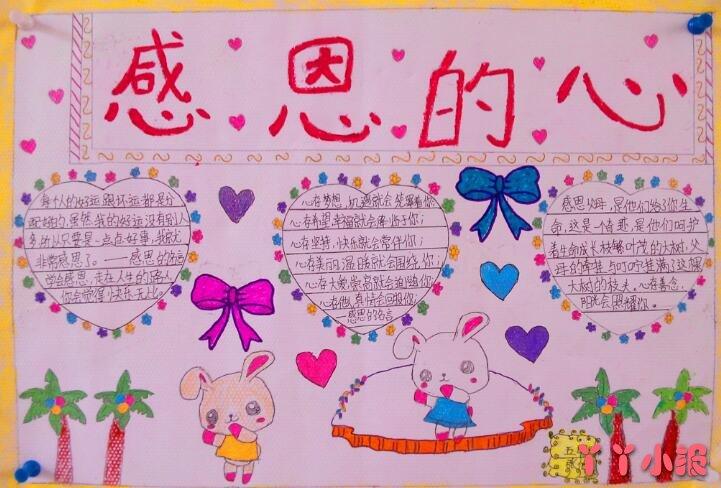 感恩的心
每个人的好运跟坏运都是分
配好的,虽然我的好运没有别人
多,所以只要是一点点好事,我就
非常感恩了。——感恩的名言
学会感恩,走在人生的路上
你会觉得快乐无比。
心存梦想,机遇就会笼罩着你
心存希望,幸福就会降临于你;
心存坚持,快乐就会常伴你;
心存美丽,温暖就会围绕你;
心存大爱,崇高就会追随你
心存他人,真情会回报你
—感恩的名言
感恩父母,是他们给了你生
命,这是一个奇迹,是他们呵护
着生命成长枝繁叶茂的大树,父
母的牵挂与叮咛挂满了这棵
大树的枝头。心存善念,
阳光会照耀你。
丫丫小报